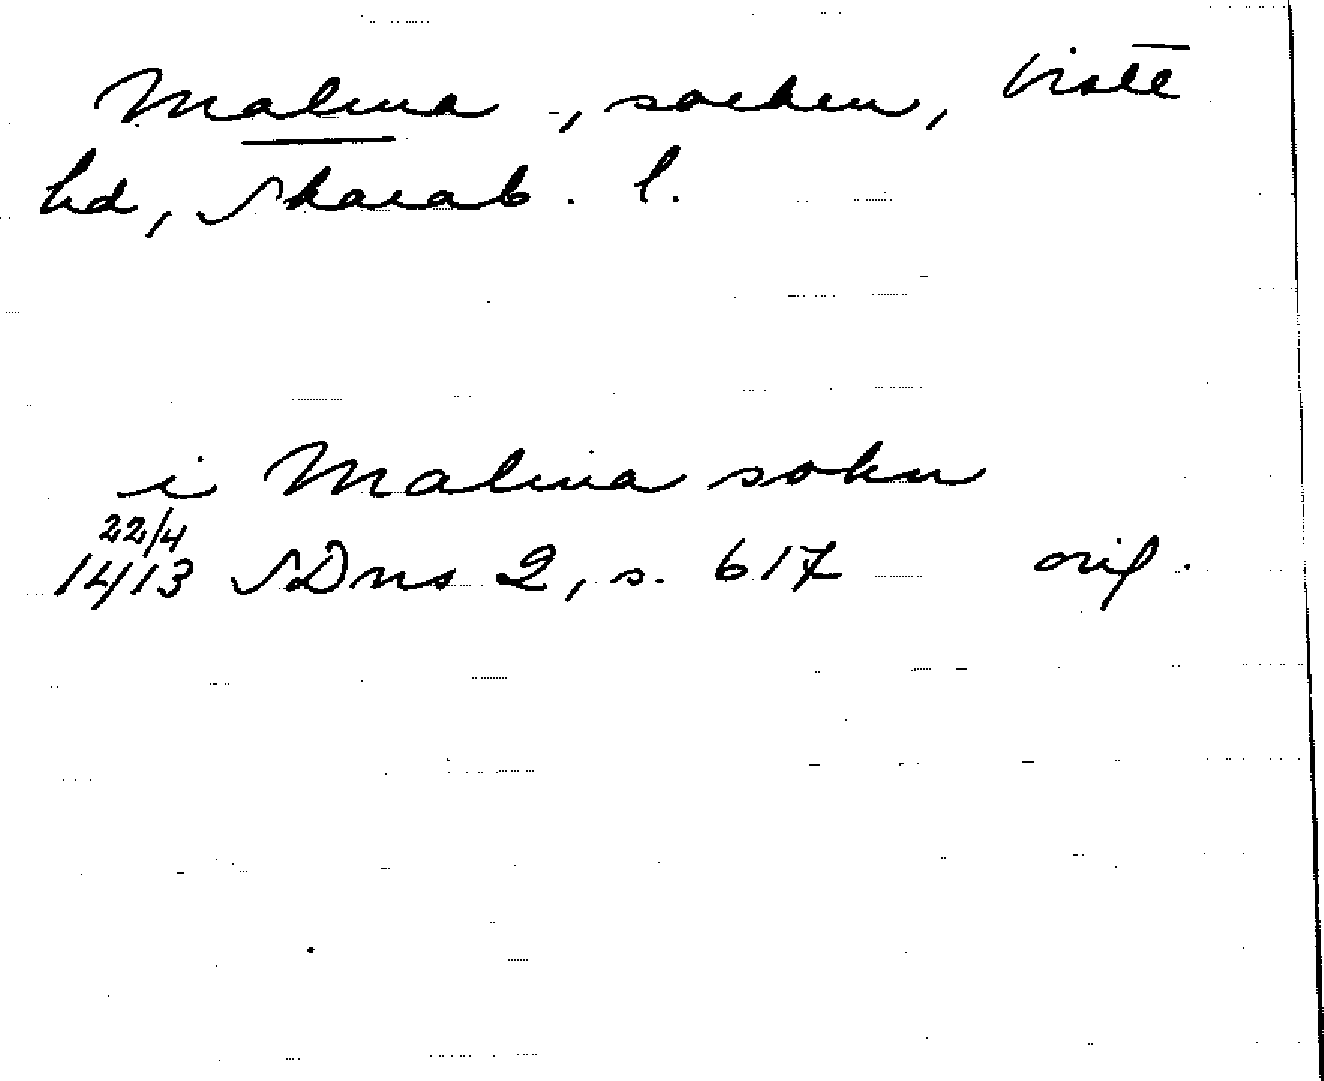 Malma, socken, Viste
hd, Skarab. l.
i Malma sokn
22/4
1413 SDns 2, s. 617 orig.